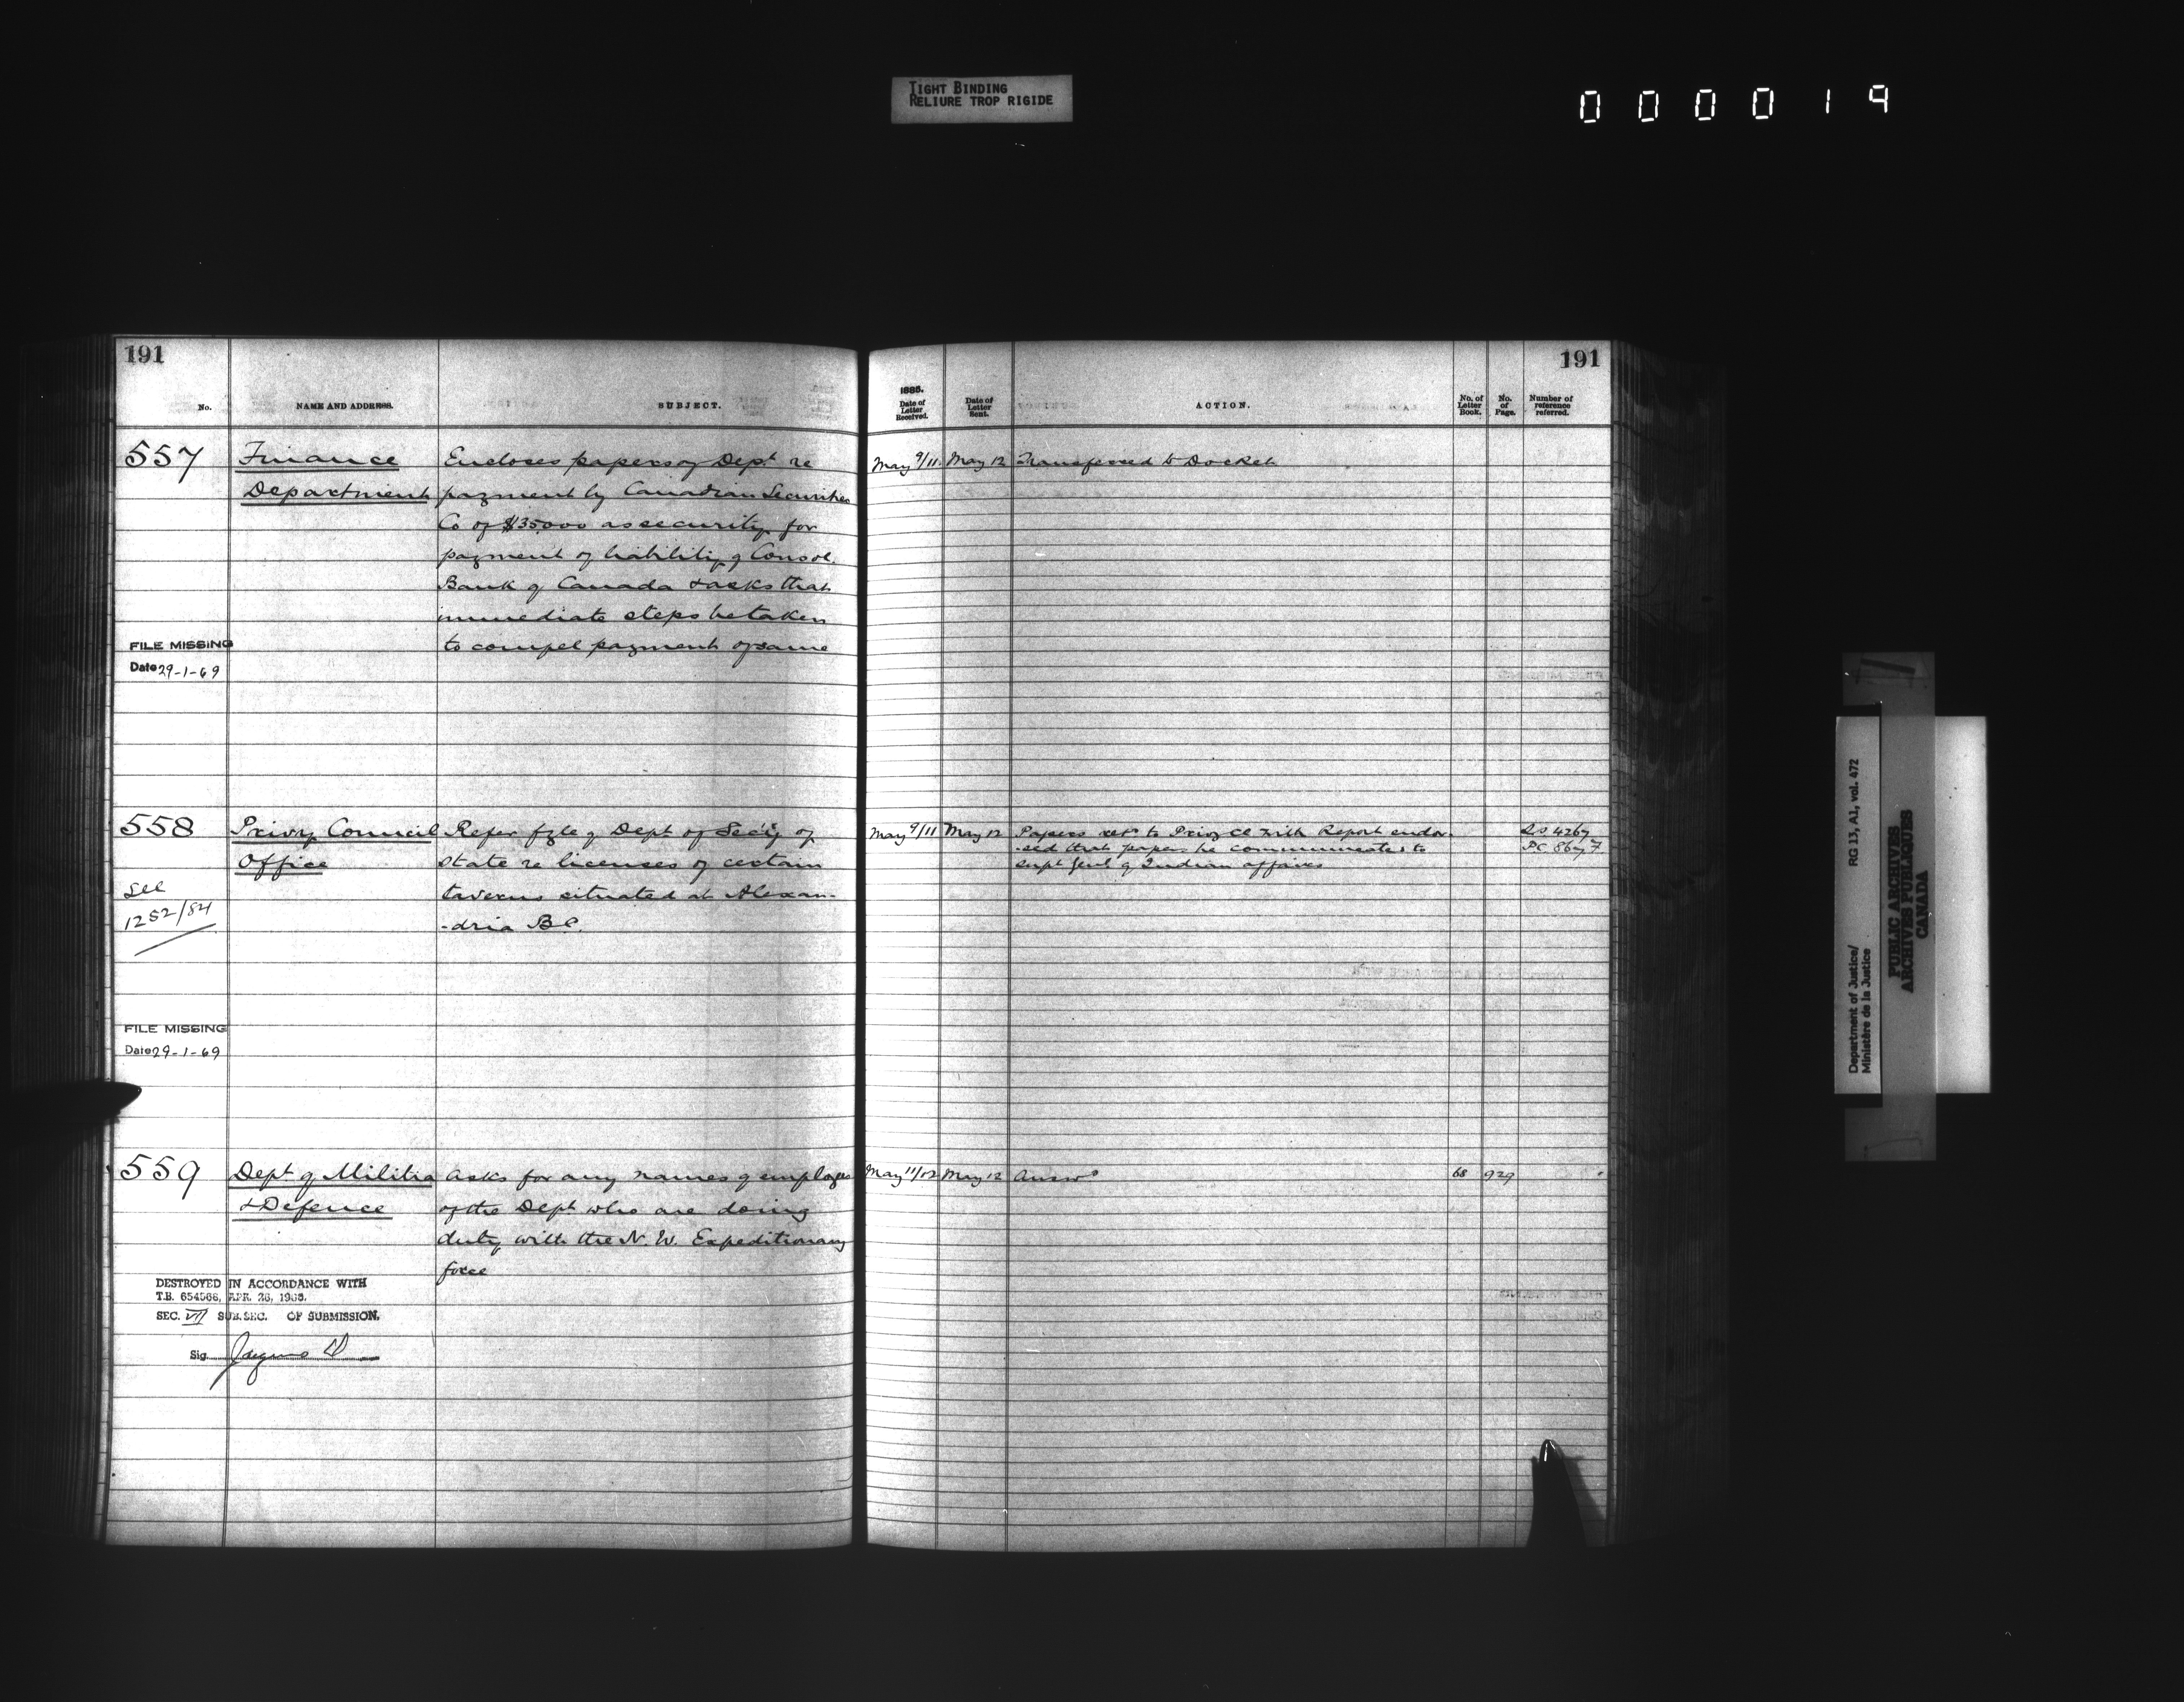 TIGHT BINDING
RELIURE TROP RIGIDE
000019
191
No.
NAME AND ADDRESS.
SUBJECT.
557
Finance
Department
Encloses papers of Dept re
payment by Canadian Securities
Co of $35000 as security for
payment of liability of Consol.
Bank of Canada & asks that
immediate steps be taken
to compel payment of same
FILE MISSING
Date 29-1-69
558
Privy Council
Office
Refer fyle of Dept of Sec'y of
State re licenses of certain
taverns situated at Alexan-
-dria B.C.
See
1252/84
FILE MISSING
Date 29-1-69
559
Dept of Militia
& Defence
Asks for any names of employes
of the Dept who are doing
duty with the N. W. Expeditionary
force
DESTROYED IN ACCORDANCE WITH
T.B. 654566, APR. 26, 1966.
SEC. VII SUB.SEC. OF SUBMISSION.
Sig.
191
1885.
Date of Letter Received.
Date of Letter Sent.
ACTION.
No. of Letter Book.
No. of Page.
Number of reference referred.
May 9/11 May 12 Transferred to Docket
May 9/11 May 12 Papers retd to Privy Cl with Report endor-
-sed that papers be communicated to
Supt Genl of Indian affairs
PC 867
May 11/12 May 12 Answd 68 929
Department of Justice/
Ministère de la Justice
RG 13, A1, vol. 472
PUBLIC ARCHIVES
ARCHIVES PUBLIQUES
CANADA